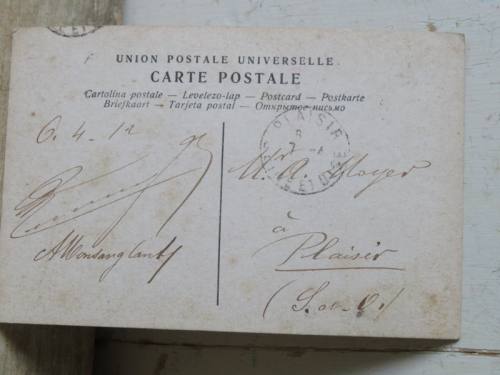 UNION POSTALE UNIVERSELLE.
CARTE POSTALE
Cartolina postale — Levelezo-lap — Postcard — Postkarte
Briefkaart — Tarjeta postal — Открытое письмо
PLAISIR
ET OISE
6. 4. 12
A. Noyer
à
Plaisir
(S. et-O.)